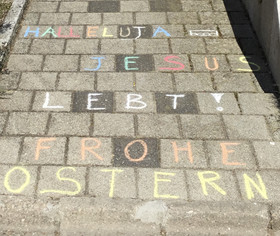 HALLELUJA
JESUS
LEBT!
FROHE
OSTERN